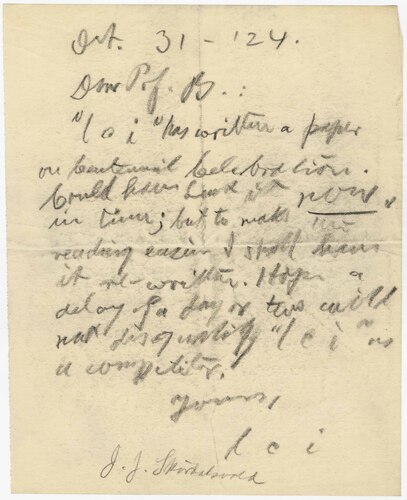 Oct. 31 - '24.
Dear Prof. B.:
"l c i" has written a paper
on Centennial Celebration.
Could have sent it now,
in time; but to make the
reading easier I shall have
it re-written. Hope a
delay of a day or two will
not disqualify "l c i" as
a competitor.
Yours,
l c i
J. J. Skördalsvold